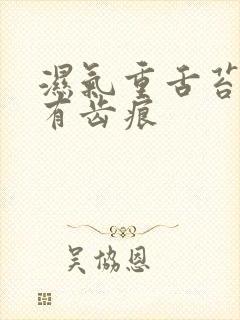 濕氣重舌苔
有齿痕
吴協恩